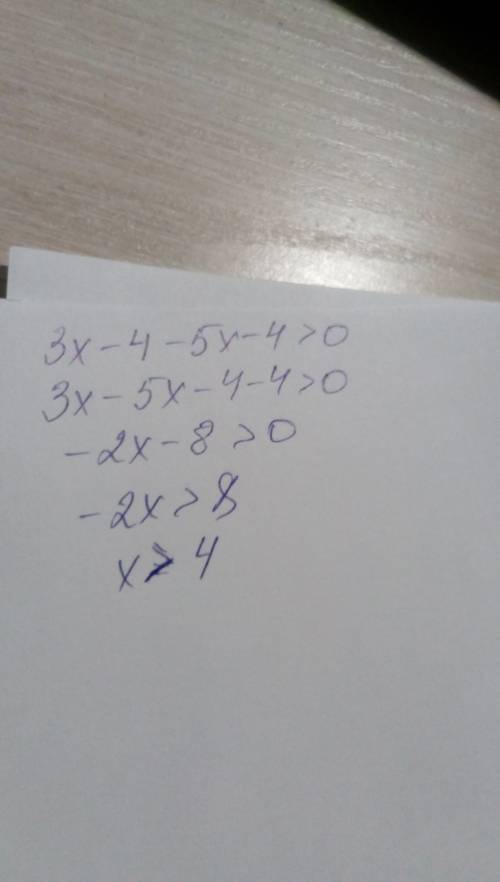 3x-4-5x-4>0
3x-5x-4-4>0
-2x-8>0
-2x>8
x>4